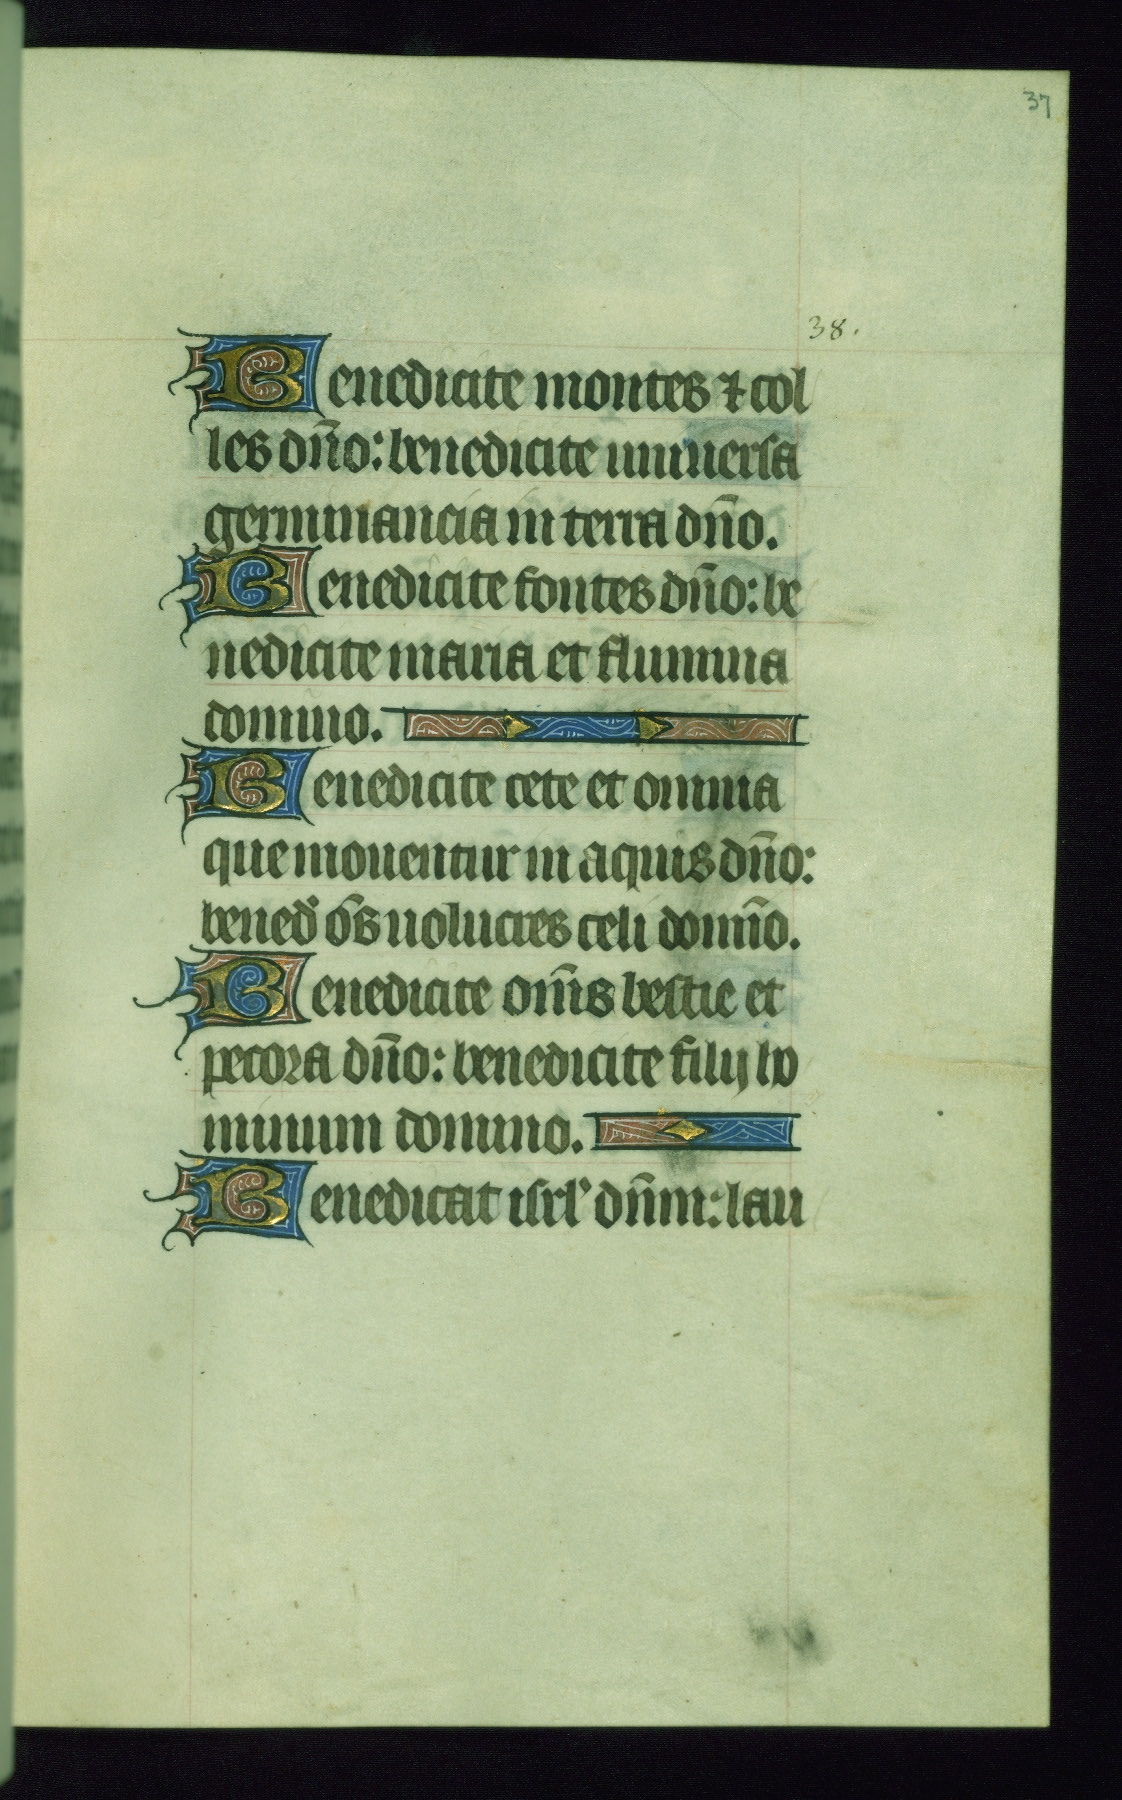 37
38.
Benedicite montes ⁊ col
les dn̄o: benedicite uniuersa
germinancia in terra dn̄o.
Benedicite fontes dn̄o: be
nedicite maria et flumina
domino.
Benedicite cete et omnia
que mouentur in aquis dn̄o:
bened̾ om̄s uolucres celi domīo.
Benedicite om̄is bestie et
pecora dn̄o: benedicite filij ho
minum domino.
Benedicat isrl̾ dn̄m: lau